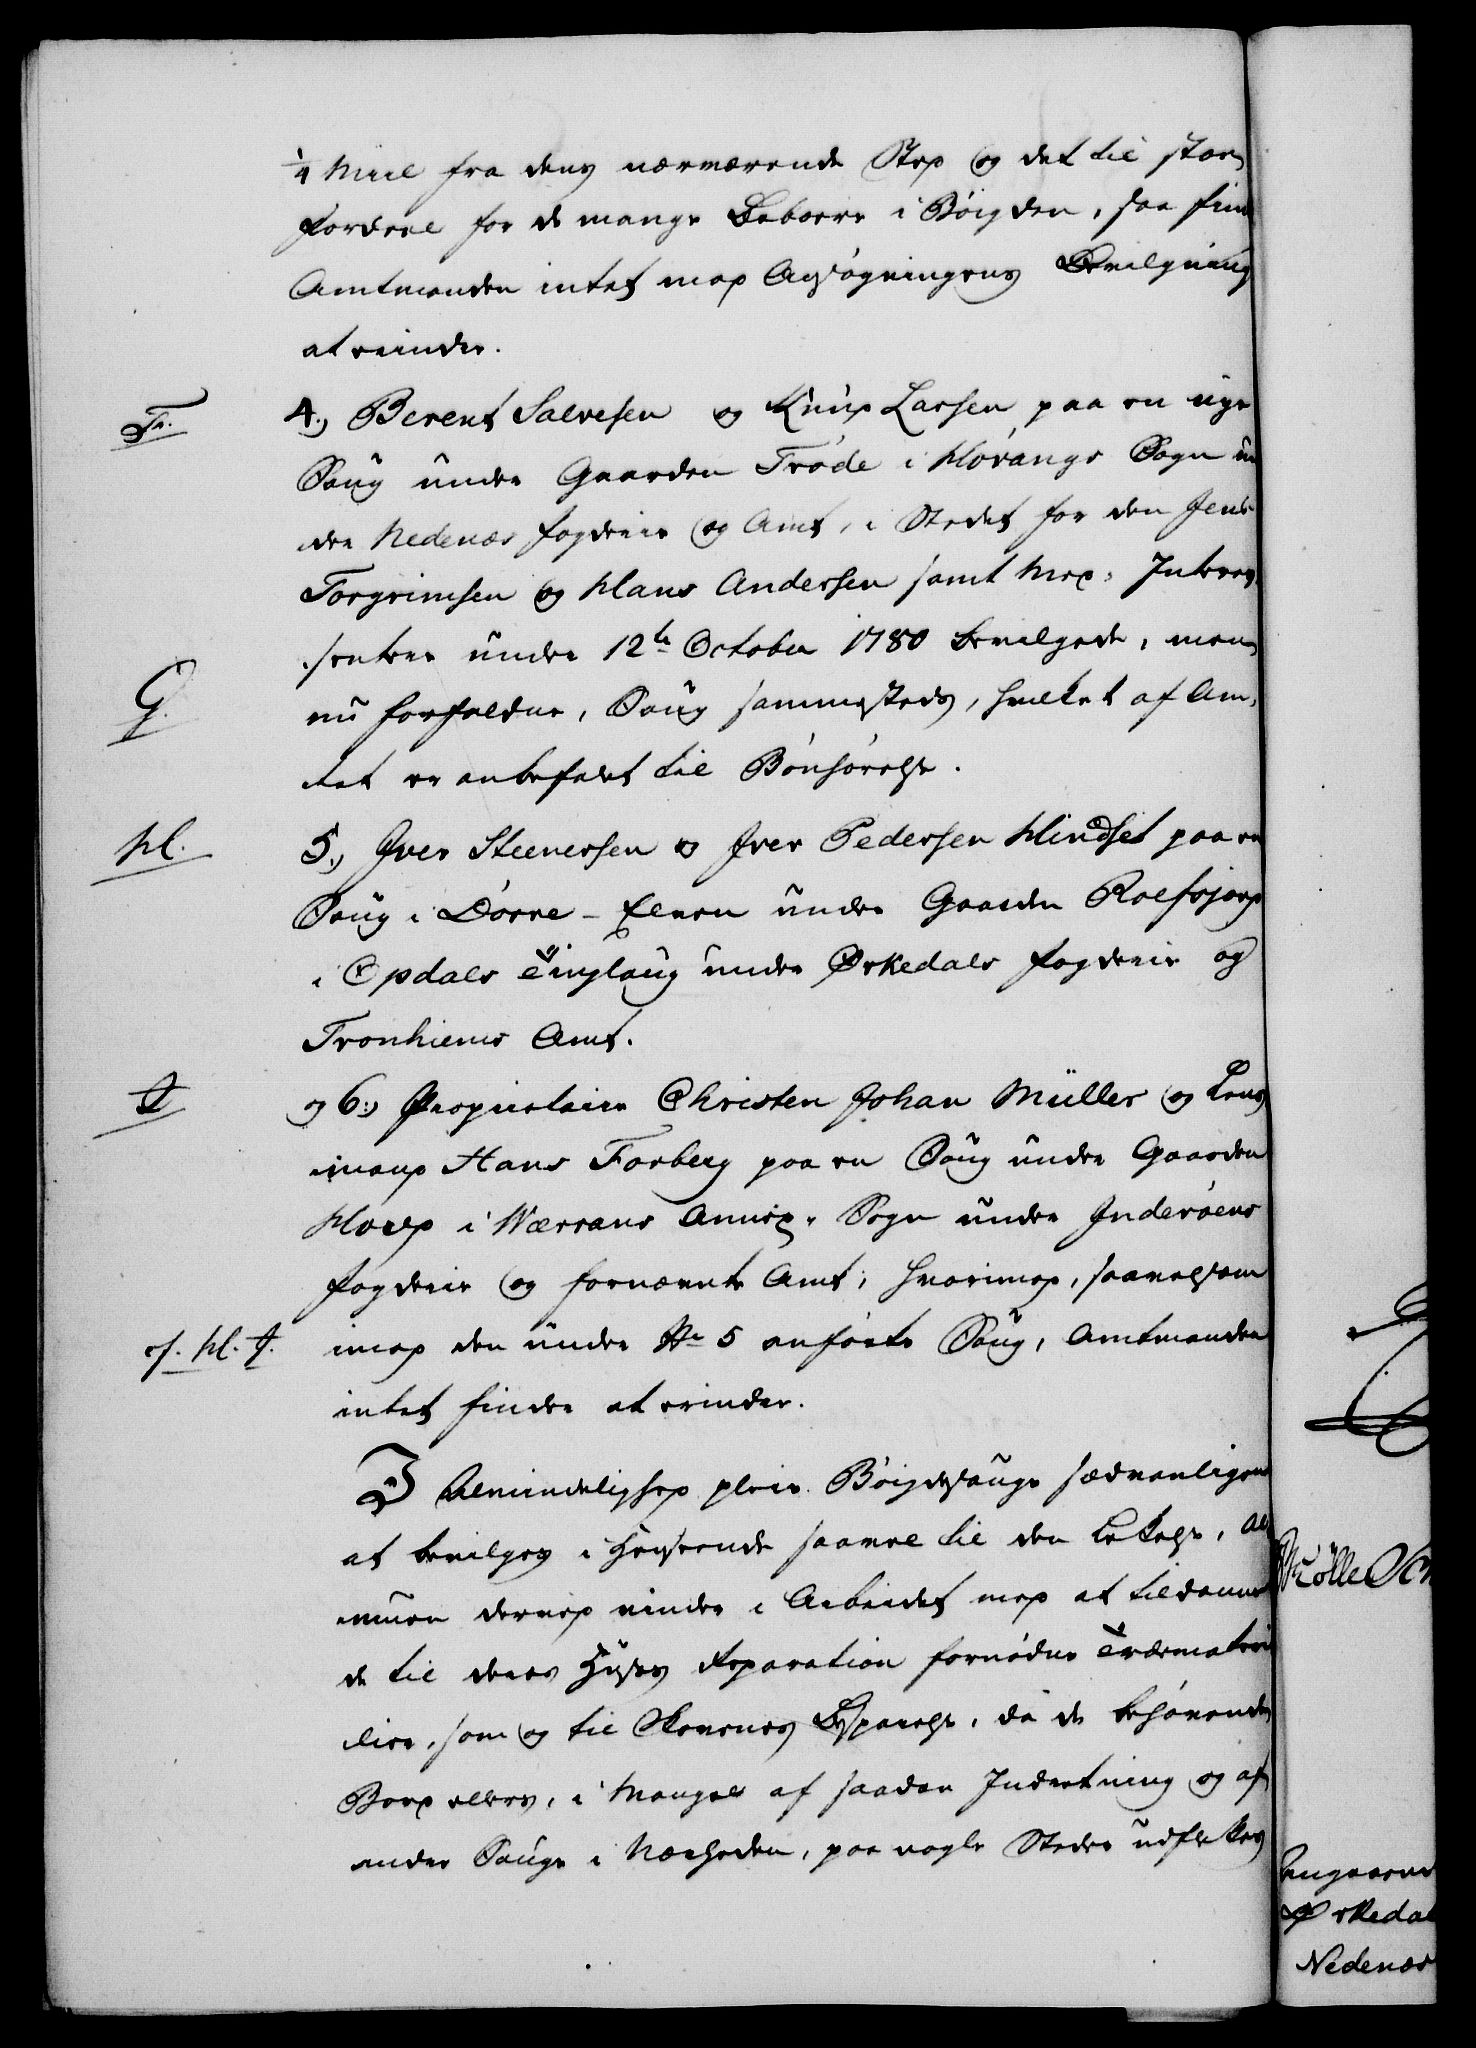 1/4 Miil fra dens nærværende Sted og det til stor
Fordeel for de mange Beboere i Bøigden, saa find
Amtmanden intet mod Ansøgningens Bevilgning
at eriindre.
Fr.
4.) Berent Salvesen og Knud Larsen paa en nye
Saug under Gaarden Trøde i Høvangs Sogn un
der Nedenæs Fogderie og Amt, i Stedet for den Jens
Torgrimsen og Hans Andersen samt Med-Interes-
senter under 12te October 1780 bevilgede, men
G.
nu forfaldne, Saug sammesteds, hvilket af Am-
tet er anbefalet til Bønhørelse.
H.
5.) Iver Steenersen og Iver Pedersen Mindset paa en
Saug i Dørre-Elven under Gaarden Rolfsjord
i Opdals Tinglaug under Ørkedals Fogderie og
Tronhiems Amt.
I
og 6.) Proprietaire Christen Johan Müller og Lens
mand Hans Forberg paa en Saug under Gaarden
Hoved i Værrans Annex-Sogn under Inderøens
Fogderie og fornævnte Amt; hvorimod, saavelsom
cf. H. I.
imod den under No 5 anførte Saug, Amtmanden
intet finder at erindre.
I Almindelighed pleie Bøigdesauge sædvanligen
at bevilges i Henseende saavel til den Lettelse, Al
muen derved vinder i Arbeidet med at tildanne
de til deres Huses Reparation fornødne Træmateria
lier, som og til Skovenes Besparelse, da de behøvende
Bord ellers, i Mangel af saadan Indretning og af
andre Sauge i Nærheden, paa nogle Steder udhukkes
Mølle
angaaende
Ørkedal
Nedenæs